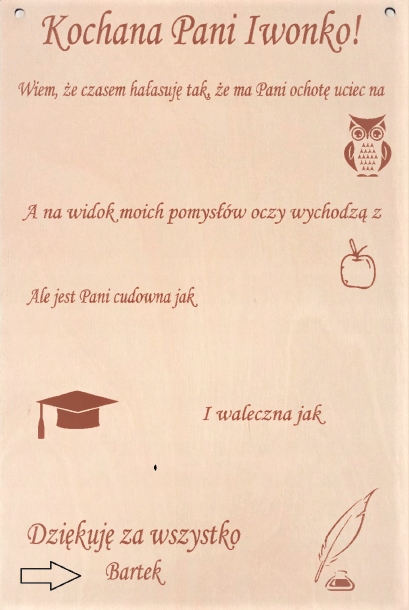 Kochana Pani Iwonko!
Wiem, że czasem hałasuję tak, że ma Pani ochotę uciec na
A na widok moich pomysłów oczy wychodzą z
Ale jest Pani cudowna jak
I waleczna jak
Dziękuję za wszystko
Bartek